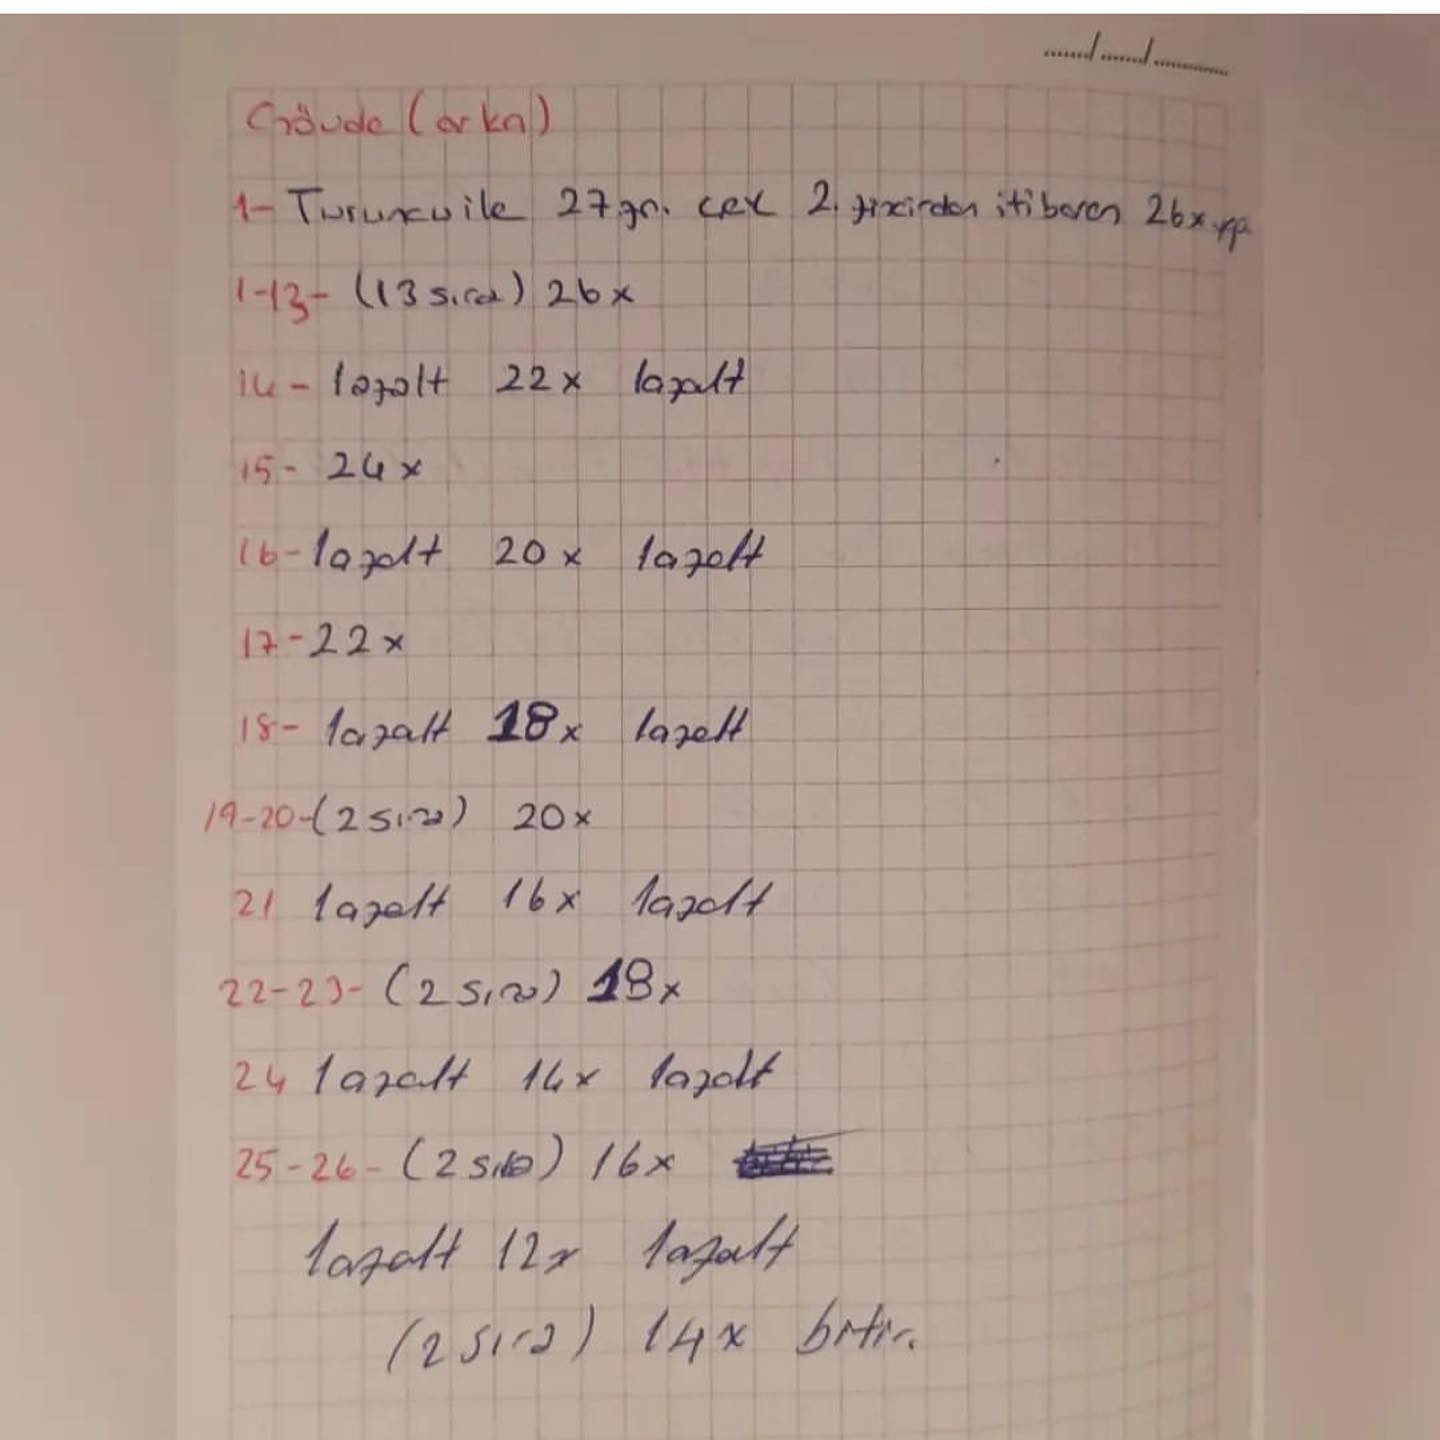 Gövde (arka)
1- Turuncu ile 27 zn. çek 2. zincirden itibaren 26x yap
1-13- (13 sıra) 26x
14- 1azalt 22x 1azalt
15- 24x
16- 1azalt 20x 1azalt
17- 22x
18- 1azalt 18x 1azalt
19-20-(2 sıra) 20x
21 1azalt 16x 1azalt
22-23- (2 sıra) 18x
24 1azalt 14x 1azalt
25-26- (2 sıra) 16x
1azalt 12x 1azalt
(2 sıra) 14x bitir.